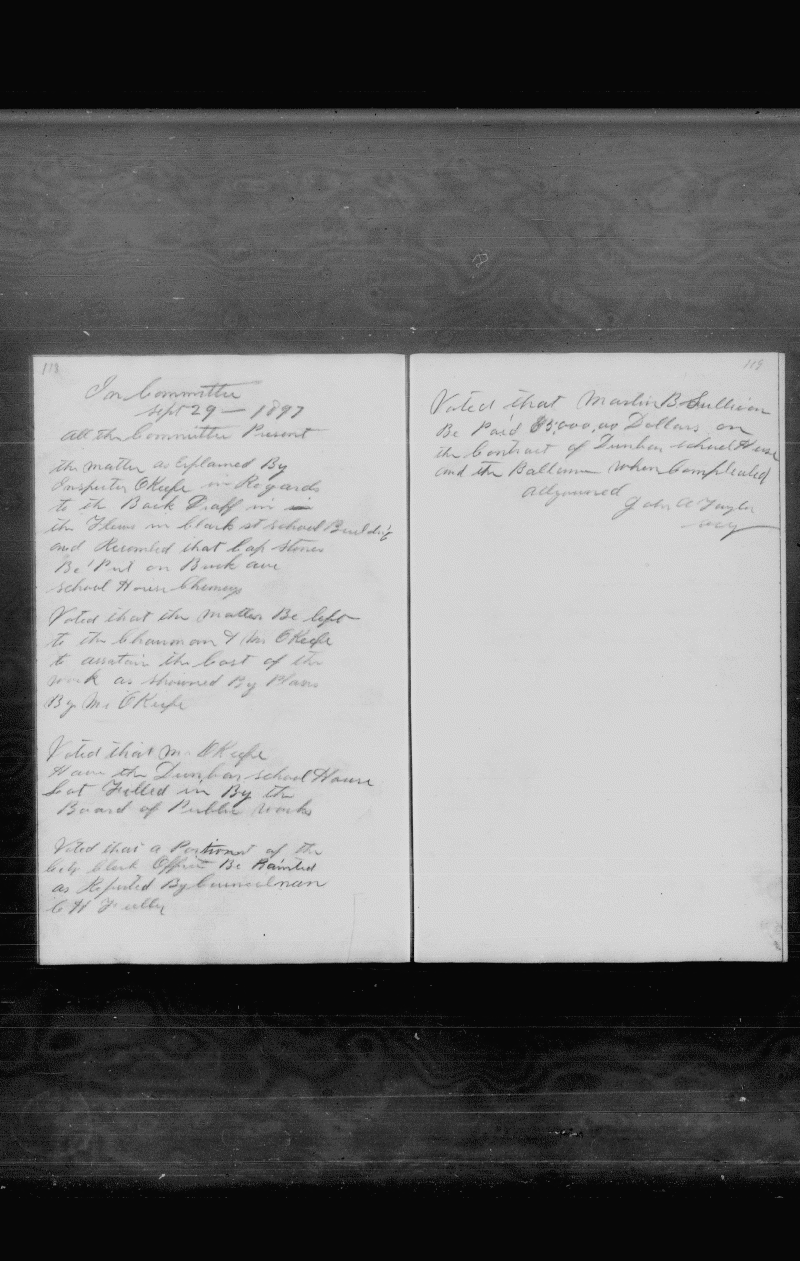 118
In Committee
Sept 29 — 1897
All the Committee Present
the matter as Explained By
Inspector OKeefe in Regards
to the Back Draff in
the Flews in Clark st school Building
and Recomded that Cap stones
Be Put on Buck ave
school House Chimneys
Voted that the Matter Be left
to the Chairman & Mr OKeefe
to assatain the Cost of the
work as showned By Plans
By Mr OKeefe
Voted that Mr OKeefe
Have the Dunbar school House
Lot Filled in By the
Board of Public Works
Voted that a Portion of the
City Clerk Office Be Painted
as Reported By Councilman
C H
119
Voted that Martin B Sullivan
Be Paid $5,000,00 Dollars on
the Contract of Dunbar school House
and the Ballance when Compleated
Adjourned
John A Taylor
secy